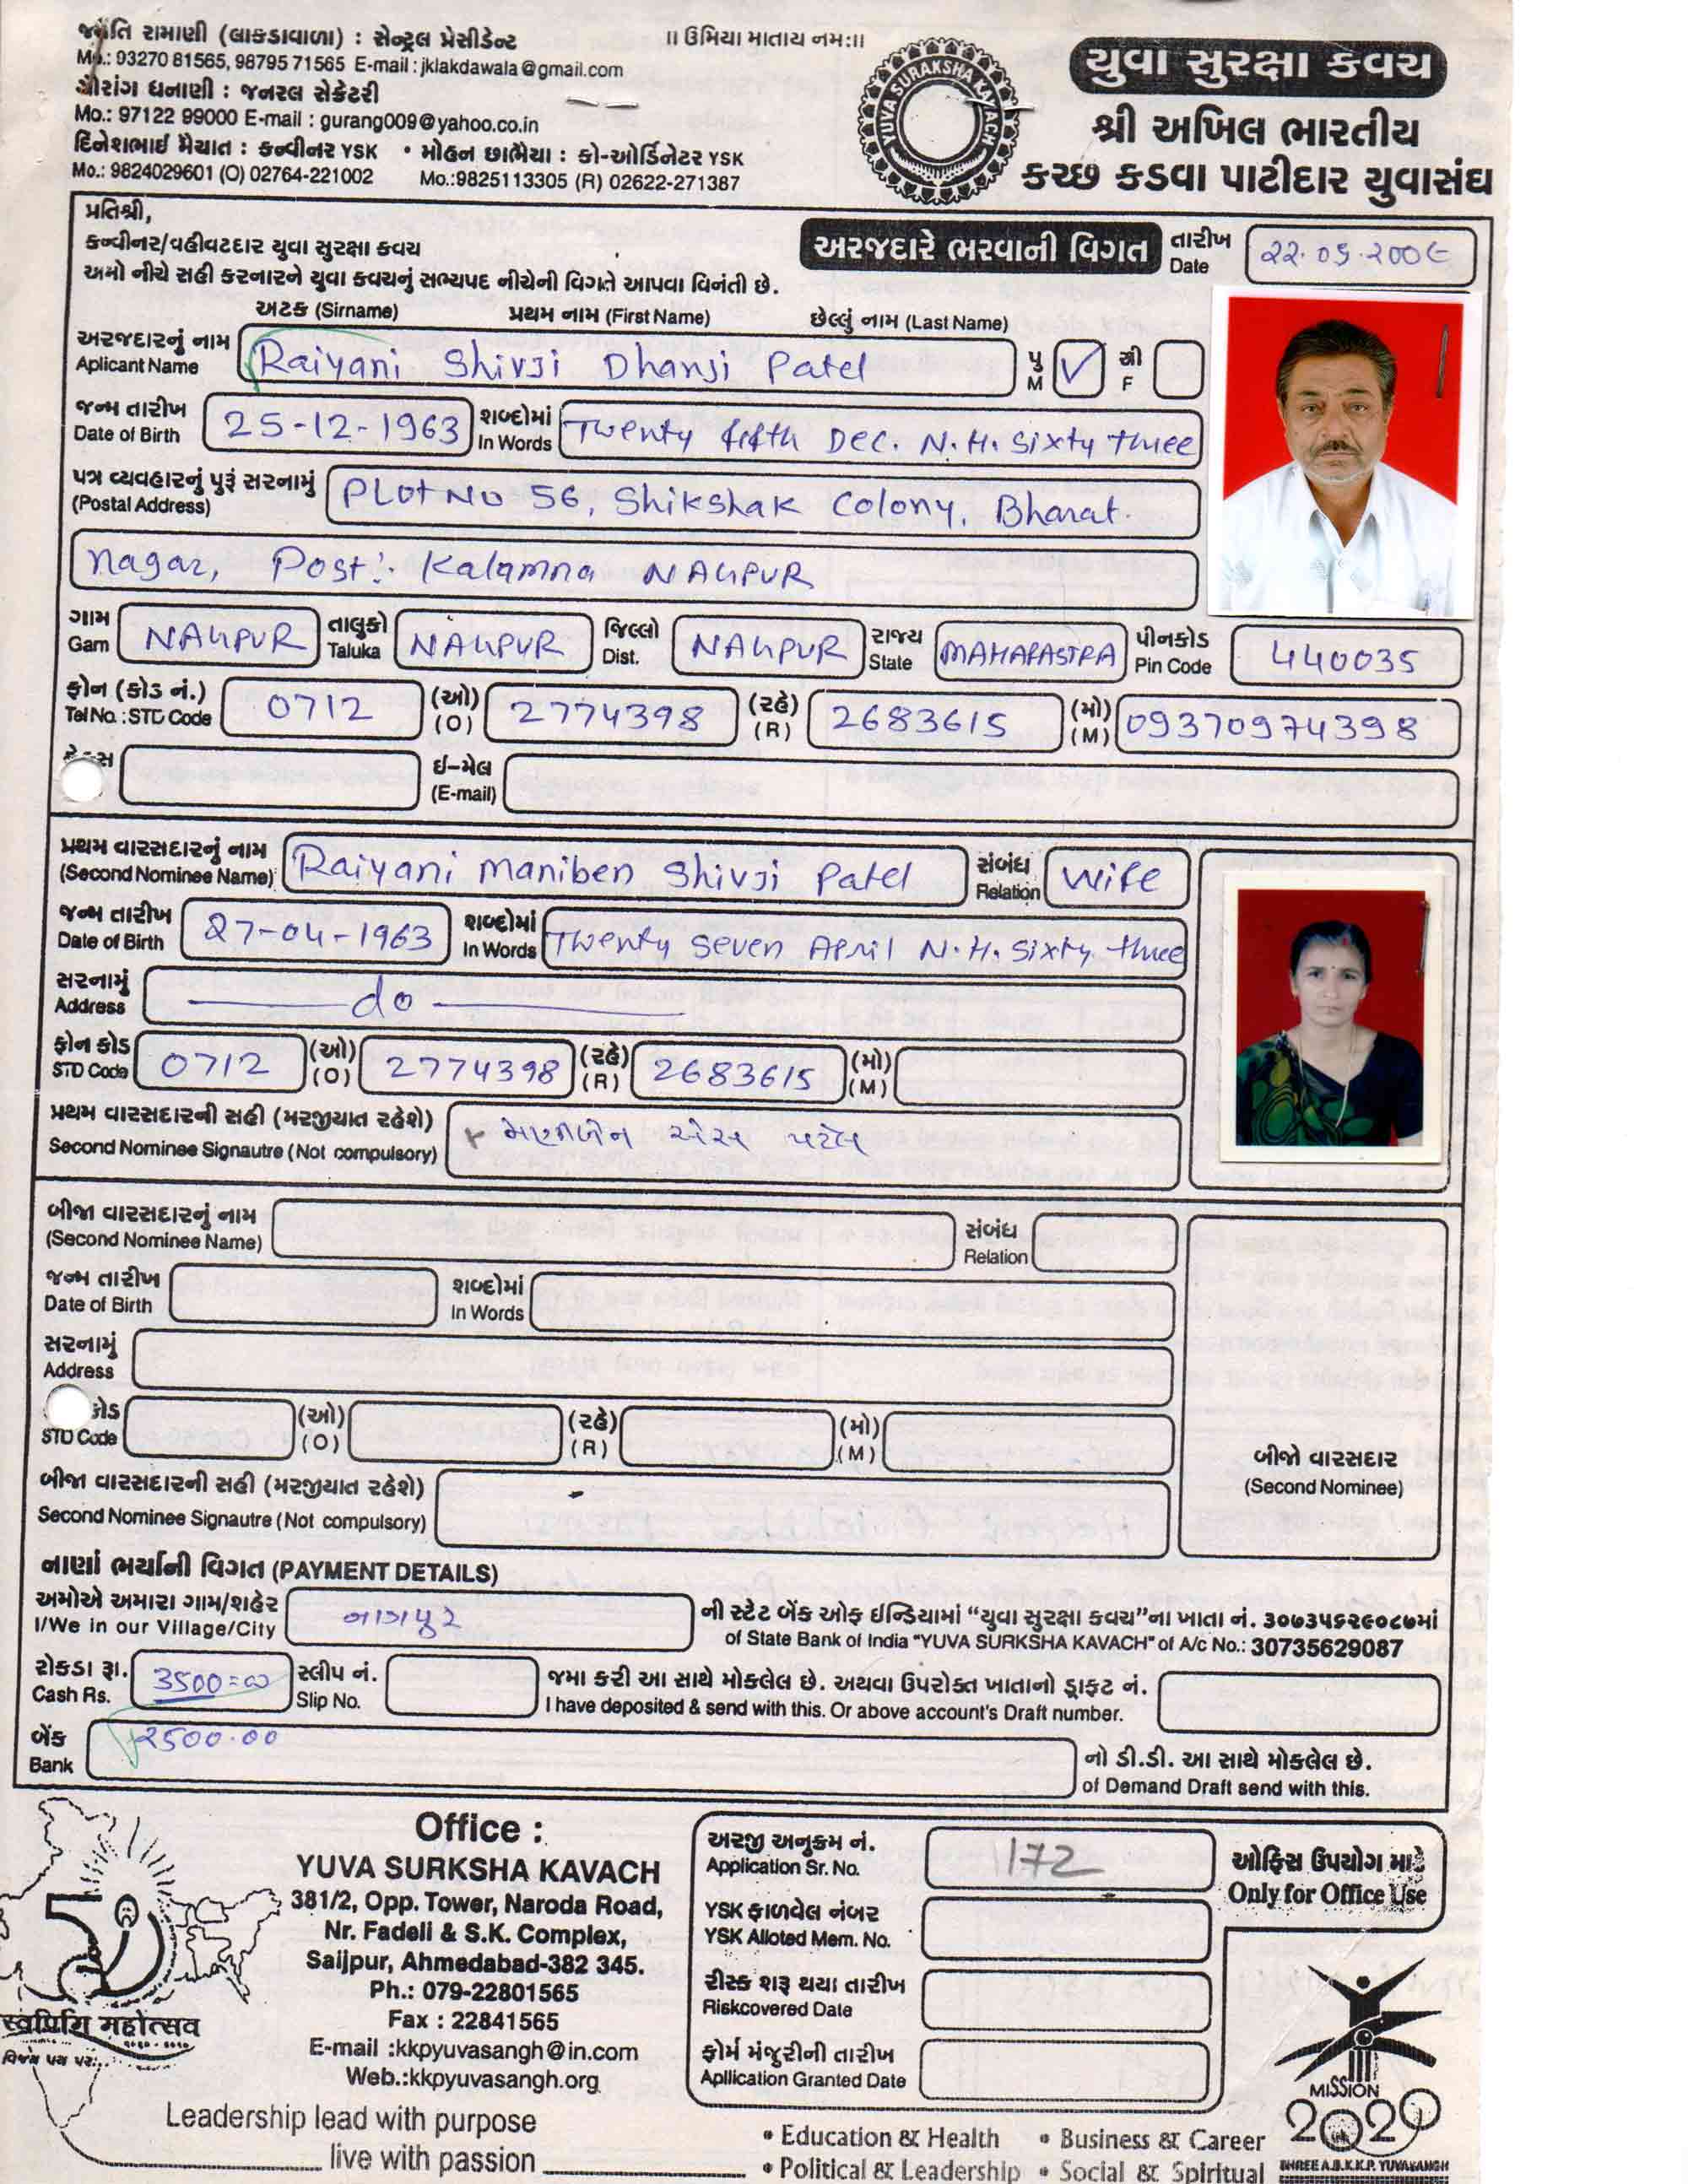 જ્યોતિ રામાણી (લાકડાવાળા) : સેન્ટ્રલ પ્રેસીડેન્ટ
Mo.: 93270 81565, 98795 71565 E-mail : jklakdawala@gmail.com
ગૌરાંગ ધનાણી : જનરલ સેક્રેટરી
Mo.: 97122 99000 E-mail : gurang009@yahoo.co.in
દિનેશભાઈ મૈયાત : કન્વીનર YSK • મોહન છાભૈયા : કો-ઓર્ડિનેટર YSK
Mo.: 9824029601 (O) 02764-221002 Mo.:9825113305 (R) 02622-271387
॥ ઉમિયા માતાય નમ:॥
YUVA SURAKSHA KAVACH
યુવા સુરક્ષા કવચ
શ્રી અખિલ ભારતીય
કચ્છ કડવા પાટીદાર યુવાસંઘ
પ્રતિશ્રી,
કન્વીનર/વહીવટદાર યુવા સુરક્ષા કવચ
અમો નીચે સહી કરનારને યુવા કવચનું સભ્યપદ નીચેની વિગતે આપવા વિનંતી છે.
અરજદારે ભરવાની વિગત
તારીખ
Date 22.05.200૯
અટક (Sirname) પ્રથમ નામ (First Name) છેલ્લું નામ (Last Name)
અરજદારનું નામ
Aplicant Name Raiyani Shivji Dhanji Patel પુ M ✓ સ્ત્રી F
જન્મ તારીખ
Date of Birth 25-12-1963 શબ્દોમાં In Words Twenty fifth Dec. N.H. Sixty three
પત્ર વ્યવહારનું પુરૂં સરનામું
(Postal Address) PLOT NO 56, Shikshak Colony, Bharat.
nagar, Post:. Kalamna NAGPUR
ગામ Gam NAGPUR તાલુકો Taluka NAGPUR જિલ્લો Dist. NAGPUR રાજ્ય State MAHARASTRA પીનકોડ Pin Code 440035
ફોન (કોડ નં.)
Tel No. : STD Code 0712 (ઓ) (O) 2774398 (રહે) (R) 2683615 (મો) (M) 09370974398
ઈ-મેલ
(E-mail)
પ્રથમ વારસદારનું નામ
(Second Nominee Name) Raiyani Maniben Shivji Patel સંબંધ Relation Wife
જન્મ તારીખ
Date of Birth 27-04-1963 શબ્દોમાં In Words Twenty Seven April N.H. Sixty three
સરનામું
Address do
ફોન કોડ
STD Code 0712 (ઓ) (O) 2774398 (રહે) (R) 2683615 (મો) (M)
પ્રથમ વારસદારની સહી (મરજીયાત રહેશે)
Second Nominee Signautre (Not compulsory) x મણીબેન એસ પટેલ
બીજા વારસદારનું નામ
(Second Nominee Name) સંબંધ Relation
જન્મ તારીખ
Date of Birth શબ્દોમાં In Words
સરનામું
Address
કોડ
STD Code (ઓ) (O) (રહે) (R) (મો) (M)
બીજા વારસદારની સહી (મરજીયાત રહેશે)
Second Nominee Signautre (Not compulsory)
બીજો વારસદાર
(Second Nominee)
નાણાં ભર્યાની વિગત (PAYMENT DETAILS)
અમોએ અમારા ગામ/શહેર
I/We in our Village/City નાગપુર
ની સ્ટેટ બેંક ઓફ ઈન્ડિયામાં “યુવા સુરક્ષા કવચ”ના ખાતા નં. ૩૦૭૩૫૬૨૯૦૮૭માં
of State Bank of India "YUVA SURKSHA KAVACH" of A/c No.: 30735629087
રોકડા રૂા.
Cash Rs. 3500=00 સ્લીપ નં. Slip No.
જમા કરી આ સાથે મોકલેલ છે. અથવા ઉપરોક્ત ખાતાનો ડ્રાફટ નં.
I have deposited & send with this. Or above account's Draft number.
બેંક
Bank 2500.00
નો ડી.ડી. આ સાથે મોકલેલ છે.
of Demand Draft send with this.
Office :
YUVA SURKSHA KAVACH
381/2, Opp. Tower, Naroda Road,
Nr. Fadeli & S.K. Complex,
Saijpur, Ahmedabad-382 345.
Ph.: 079-22801565
Fax : 22841565
E-mail :kkpyuvasangh@in.com
Web.:kkpyuvasangh.org
અરજી અનુક્રમ નં.
Application Sr. No. 172
YSK ફાળવેલ નંબર
YSK Alloted Mem. No.
રીસ્ક શરૂ થયા તારીખ
Riskcovered Date
ફોર્મ મંજુરીની તારીખ
Apllication Granted Date
ઓફિસ ઉપયોગ માટે
Only for Office Use
50
महोत्सव
MISSION
2020
SHREE A.B.K.K.P. YUVASANGH
Leadership lead with purpose
live with passion
• Education & Health • Business & Career
• Political & Leadership • Social & Spiritual